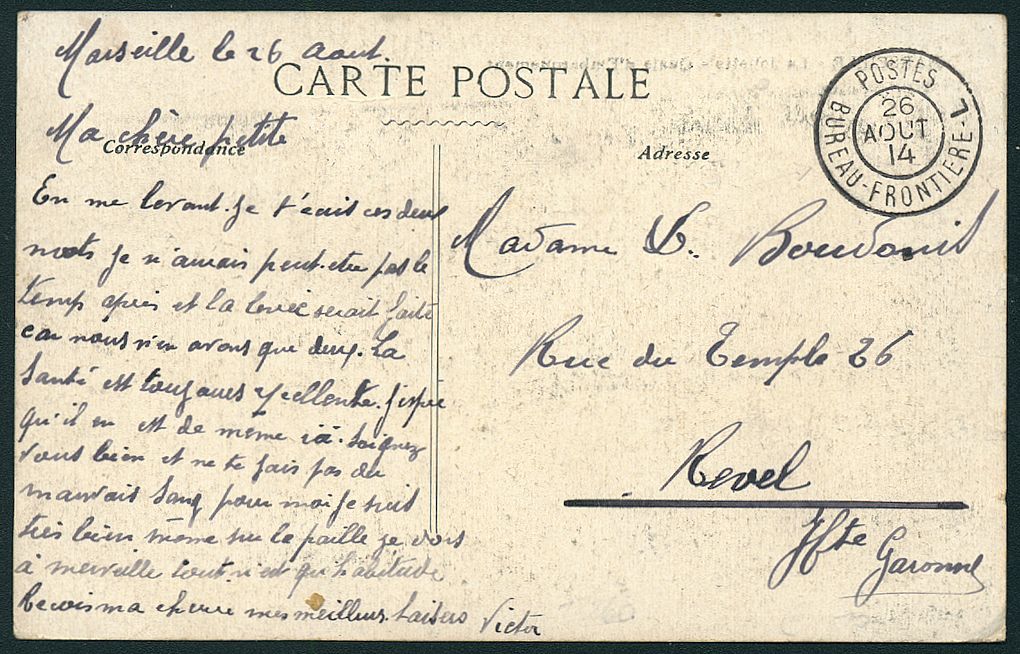 Marseille le 26 Aout.
CARTE POSTALE
Ma chère petite
Correspondance
En me levant je t'écris ces deux
mots je n'aurais peut-etre pas le
temps après et la levée serait faite
car nous n'en avons que deux. La
Santé est toujours excellente. j'espère
qu'il en est de même ici. Soignez
vous bien et ne te fais pas du
mauvais sang pour moi je suis
très bien même sur la paille je dors
à merveille tout n'est qu'habitude
Recois ma cherie mes meilleurs baisers Victor
Adresse
Madame
Rue du Temple 26
Revel
Hte Garonne
POSTES
BUREAU-FRONTIERE L
26
AOUT
14